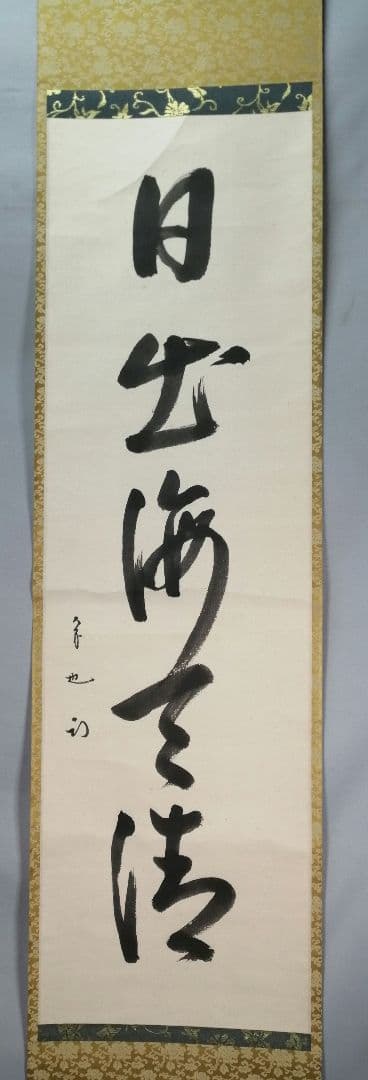 日出海天清